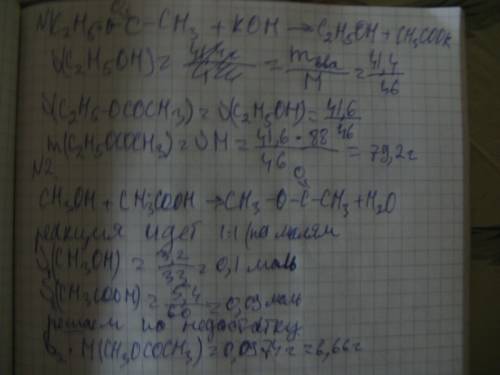 N1 C₂H₅-O-C-CH₃ + KOH → C₂H₅OH + CH₃COOK
O
ν(C₂H₅OH) = = mв-ва/M = 41,4/46
ν(C₂H₅-OCOCH₃) = ν(C₂H₅OH) = 41,6/46
m(C₂H₅OCOCH₃) = νM = 41,6 · 88/46 = 79,2г
N2.
O
CH₃OH + CH₃COOH → CH₃-O-C-CH₃ + H₂O
реакция идет 1:1 (по молям
ν(CH₃OH) = 3,2/33 = 0,1 моль
ν(CH₃COOH) = 5,4/60 = 0,09 моль
решаем по недостатку
M(CH₃OCOCH₃) = 0,09·74г = 6,66г